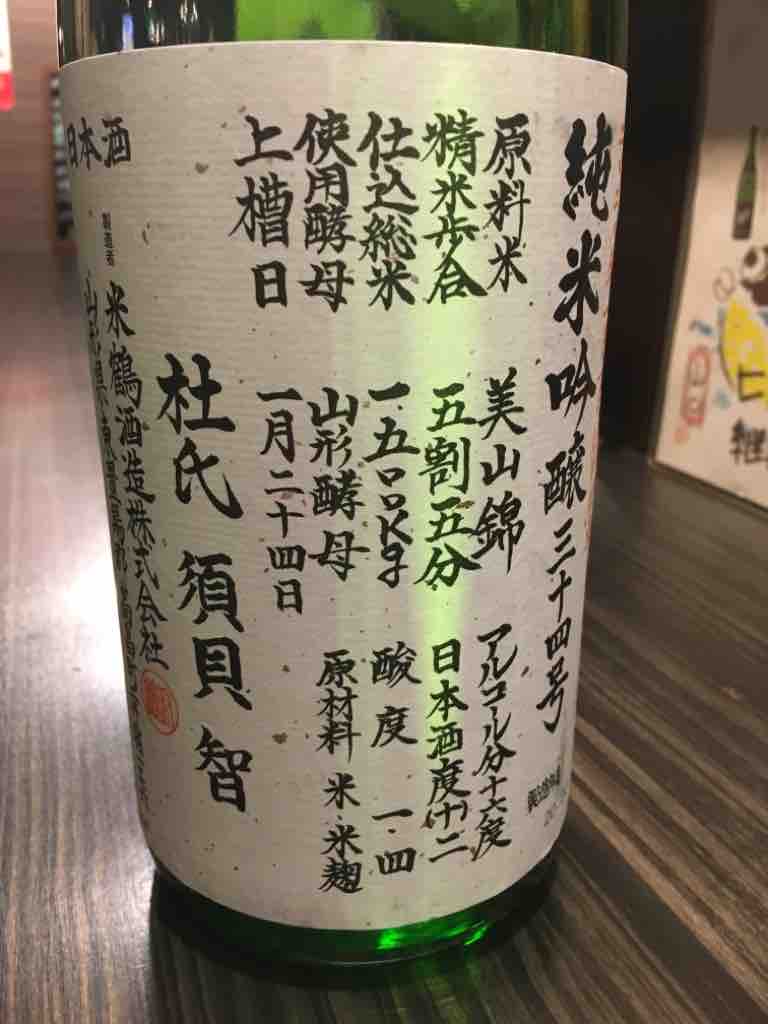 純米吟醸三十四号
原料米 美山錦 アルコール分十六度
精米歩合 五割五分 日本酒度(十)二
仕込総米 一五〇〇Kg 酸度 一・四
使用酵母 山形酵母 原材料 米・米麹
上槽日 一月二十四日
杜氏 須貝 智
日本酒
製造者 米鶴酒造株式会社
山形県東置賜郡高畠町